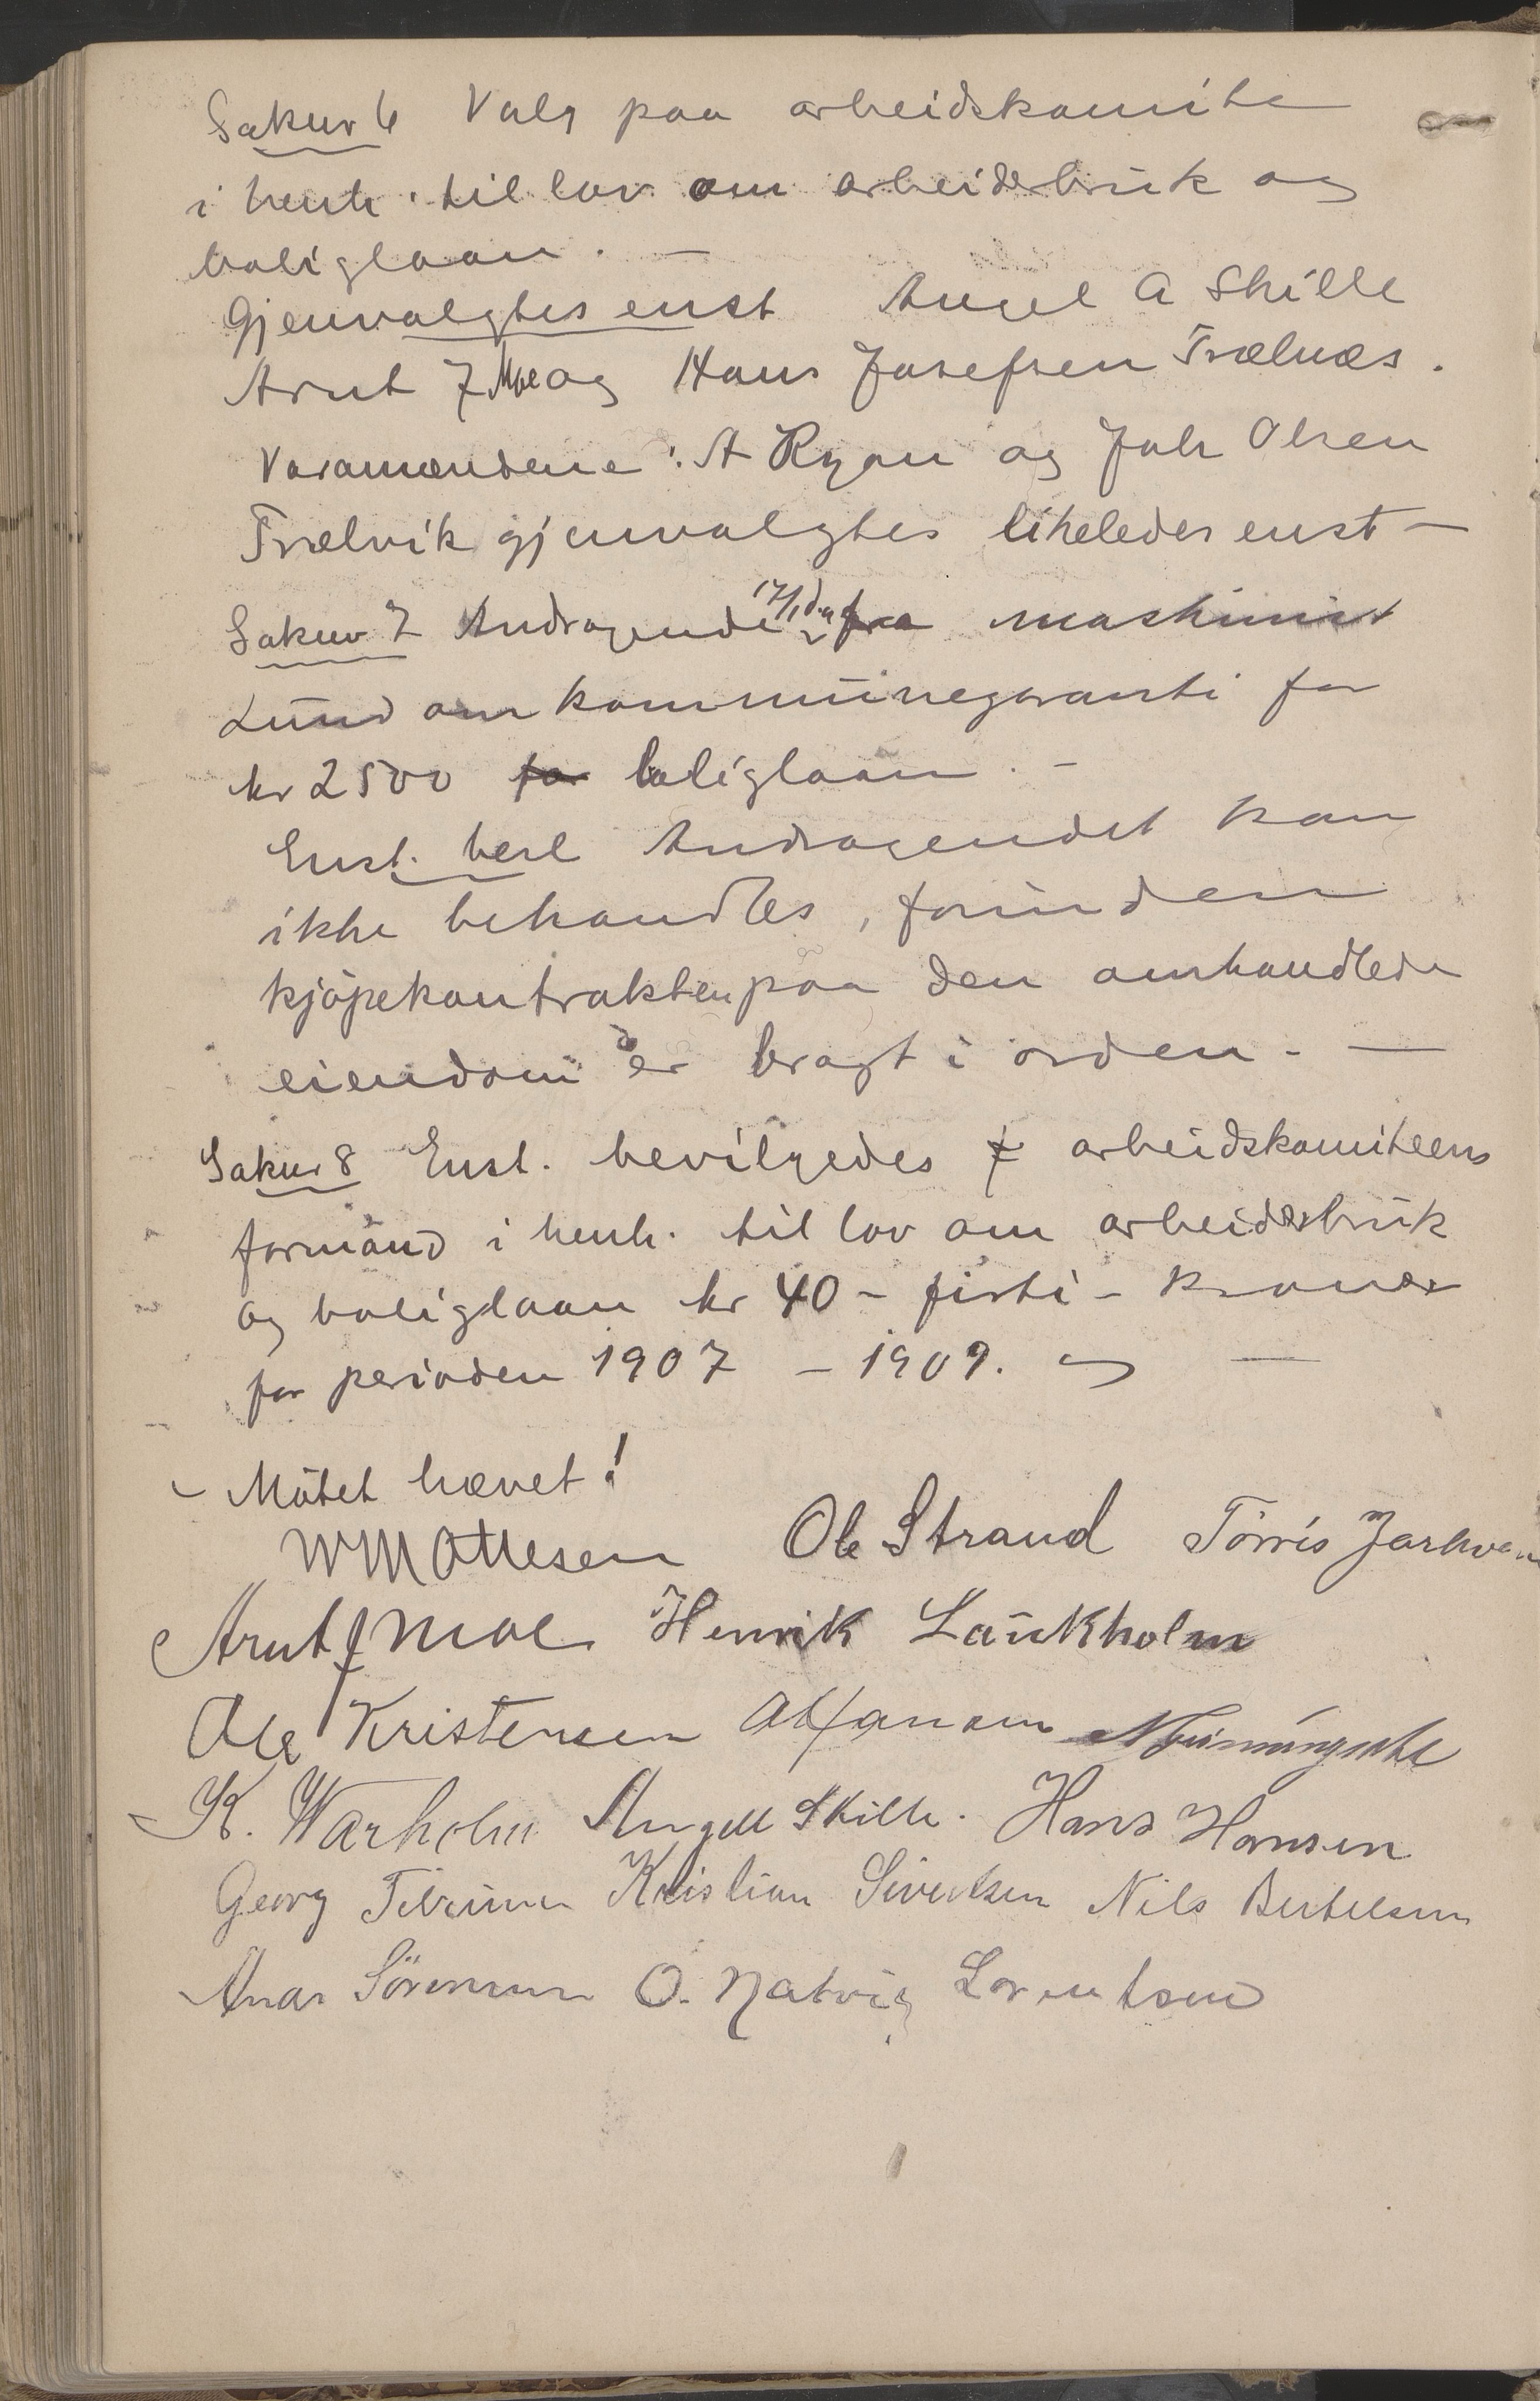 Saknr 6 Valg paa arbeidskomite
i henh. til lov om arbeiderbruk og
boliglaan. —
Gjenvalgtes enst Angel A Skille
Arnt J Moe og Hans Josefsen Trælnes.
Varamændene: A Ryan og Joh Olsen
Trælvik gjenvalgtes likeledes enst —
Saknr 7 Andragende 17/1 d.a. fra maskinist
Lund om kommunegaranti for
kr 2500 for boliglaan. —
Enst. besl Andragendet kan
ikke behandles, forinden
kjöpekontrakten paa den omhandlede
eiendom er bragt i orden. —
Saknr 8 Enst. bevilgedes arbeidskomiteens
formand i henh. til lov om arbeiderbruk
og boliglaan kr 40 - firti - kroner
for perioden 1907 - 1909. —
- Mötet hævet!
WM Ottesen Ole Strand Törris
Arnt J Moe Henrik Laukholm
Ole Kristensen
K. Warholm Angell Skille. Hans Hansen
Georg Kristian Sivertsen Nils Bertelsen
Sörensen O. Natvig Lorentsen